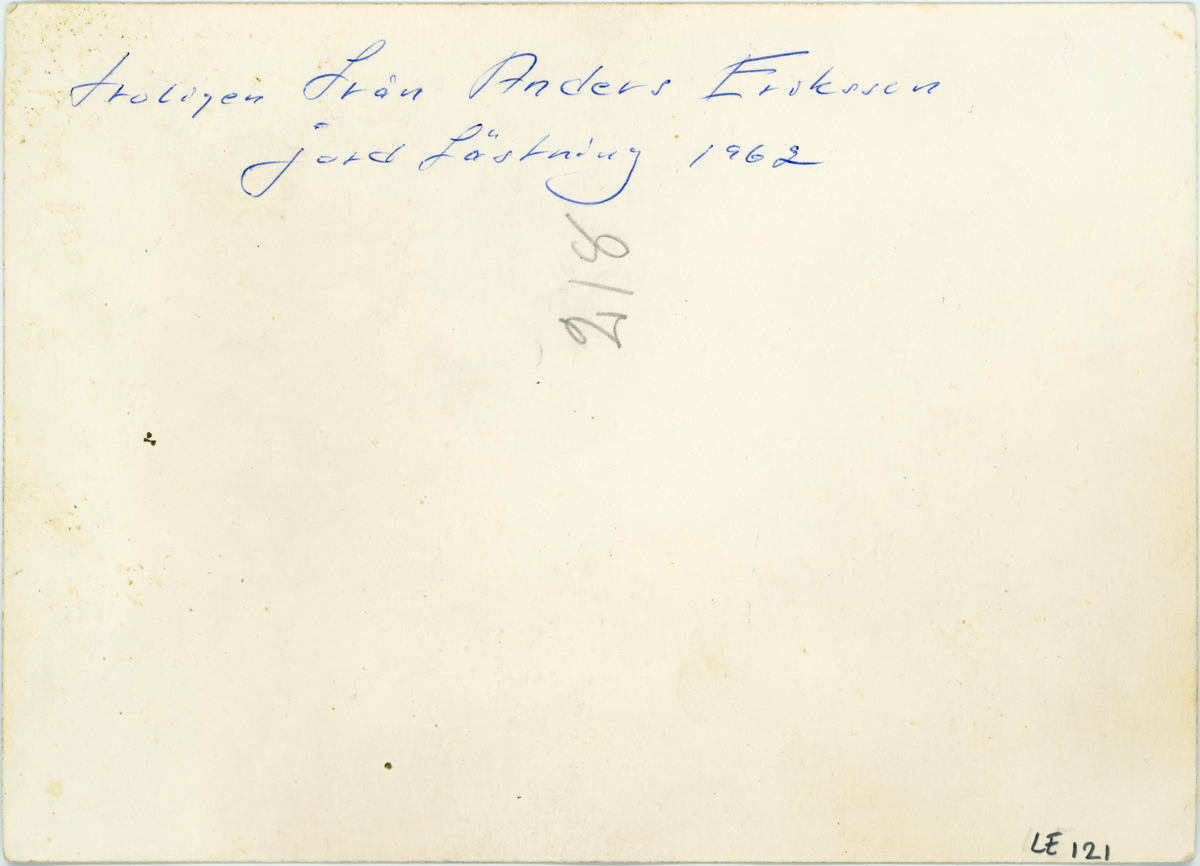 troligen från Anders Eriksson
jord fästning 1962
218
LE 121